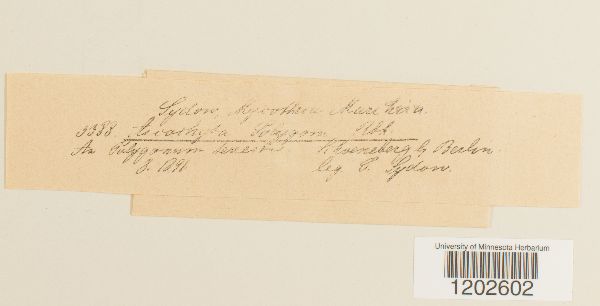 Sydow, Mycotheca Marchica.
3383 Ascochyta Polygoni Rbh.
An Polygonum Schöneberg b. Berlin.
8. 1891 leg. P. Sydow.
University of Minnesota Herbarium
1202602